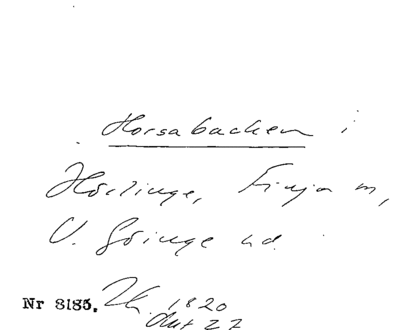 Horsabacken i
Hörlinge, Finja sn,
V. Göinge hd.
Nr 3185. 1820
Akt 27